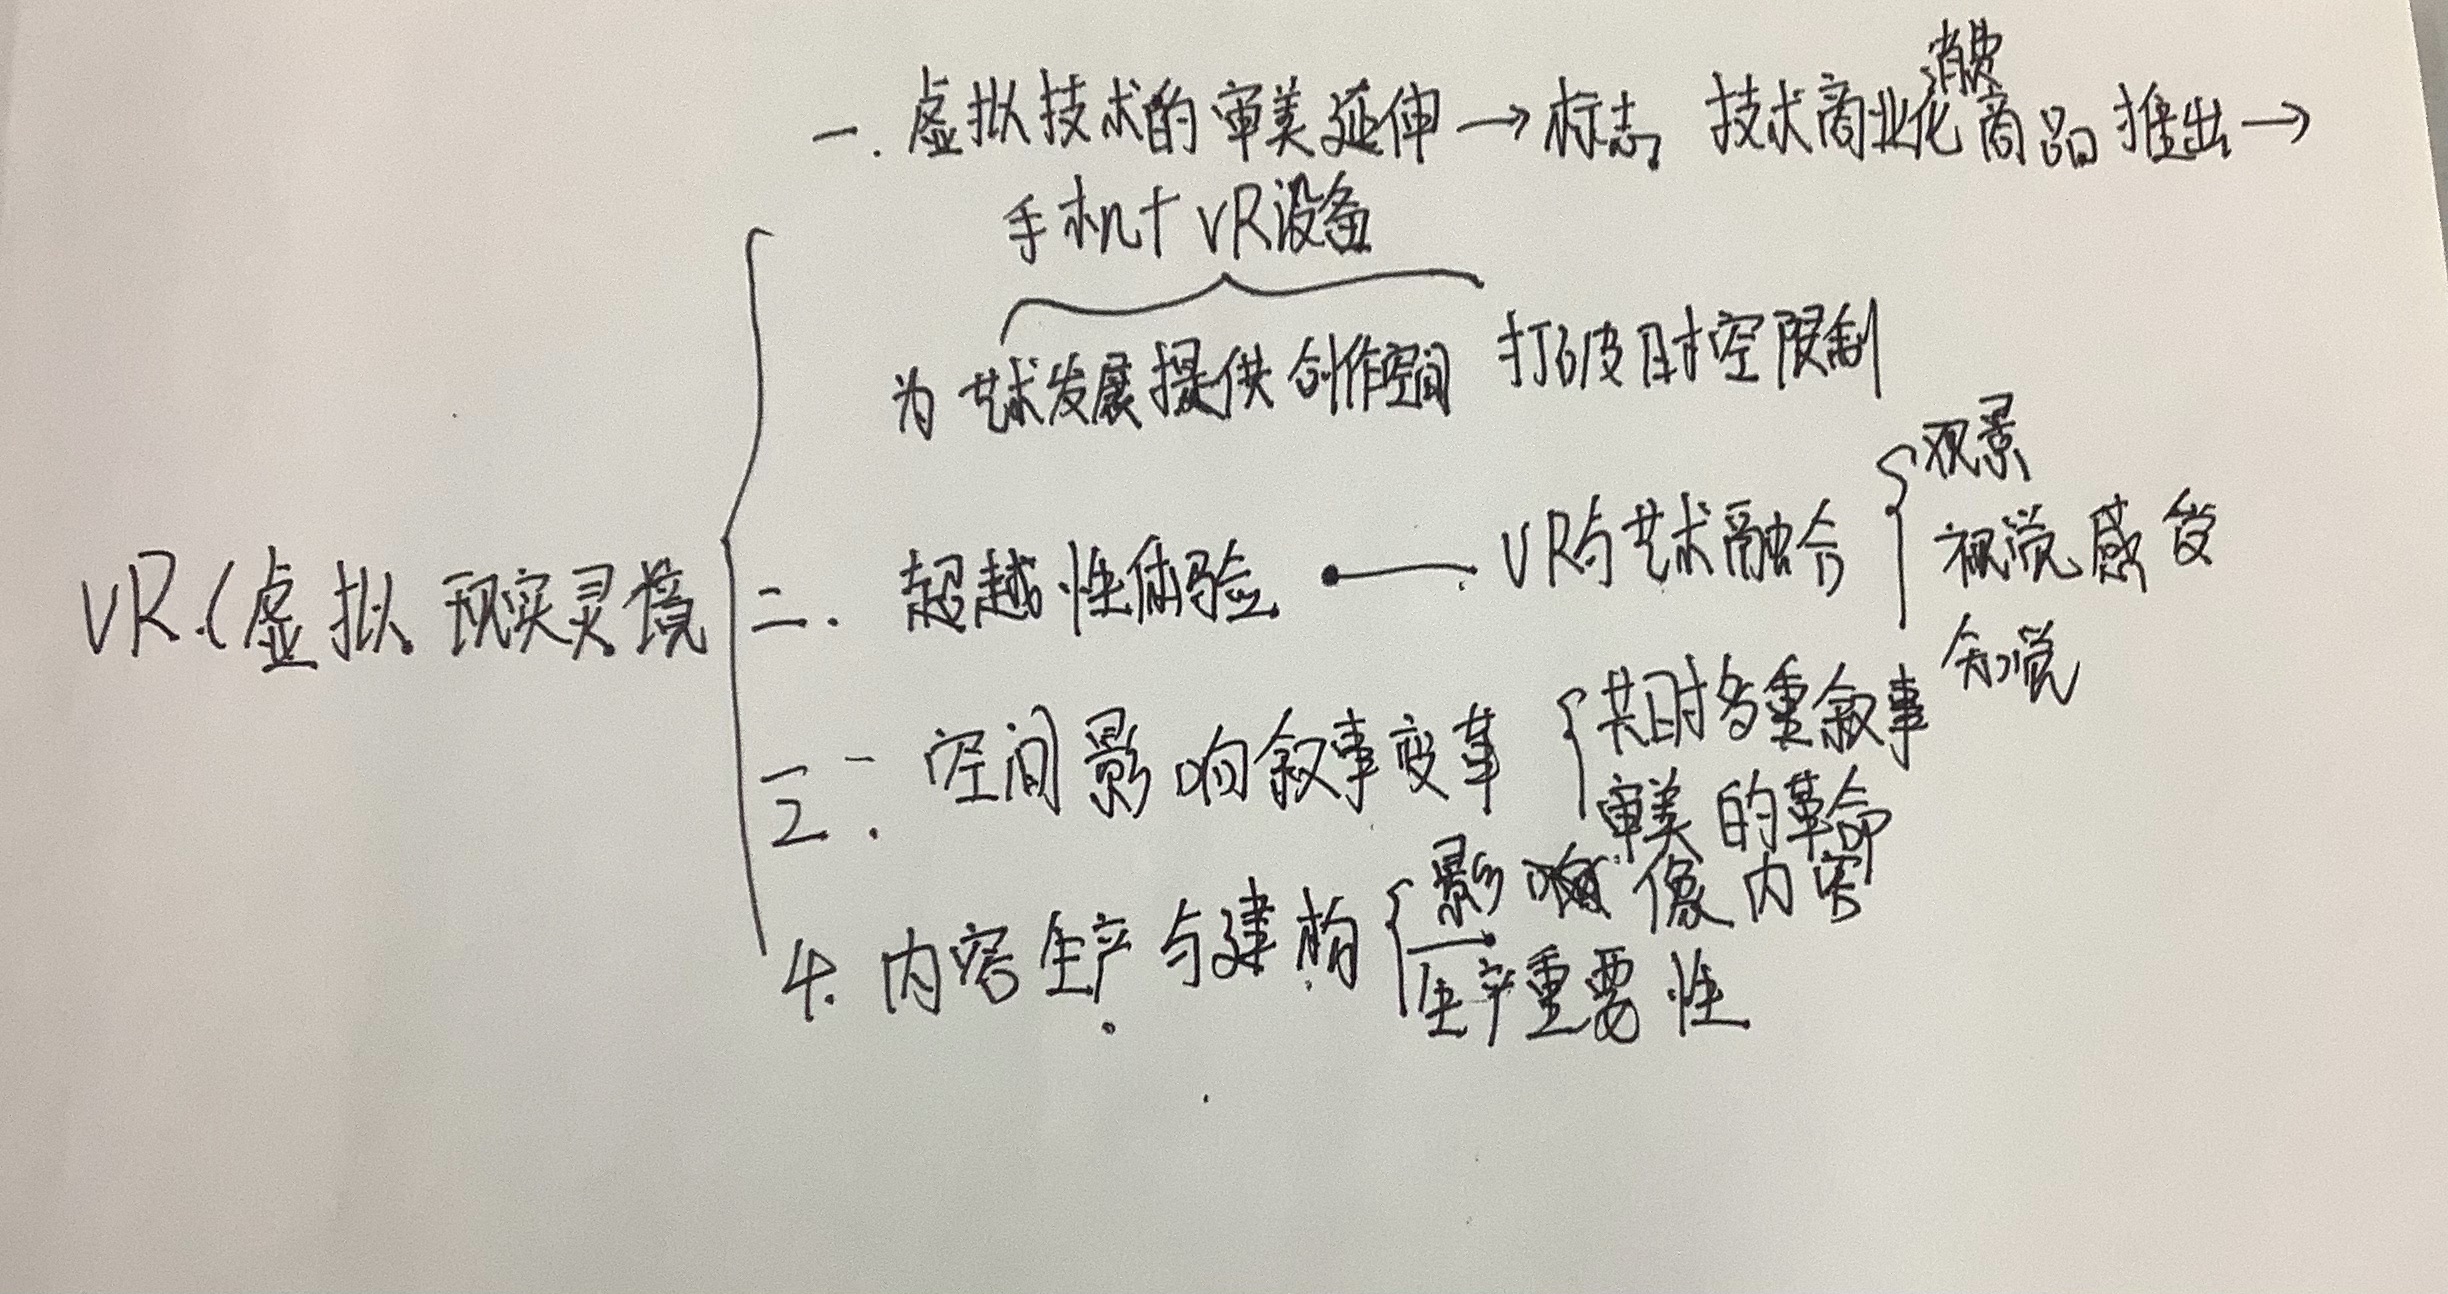 消费
一.虚拟技术的审美延伸→标志 技术商业化商品推出→
手机+VR设备
为艺术发展提供创作空间 打破时空限制
VR(虚拟现实灵境
二.超越性体验 — VR与艺术融合
观景
视觉感受
知觉
三.空间影响叙事变革
共时多重叙事
审美的革命
4.内容生产与建构
影像内容
生产重要性